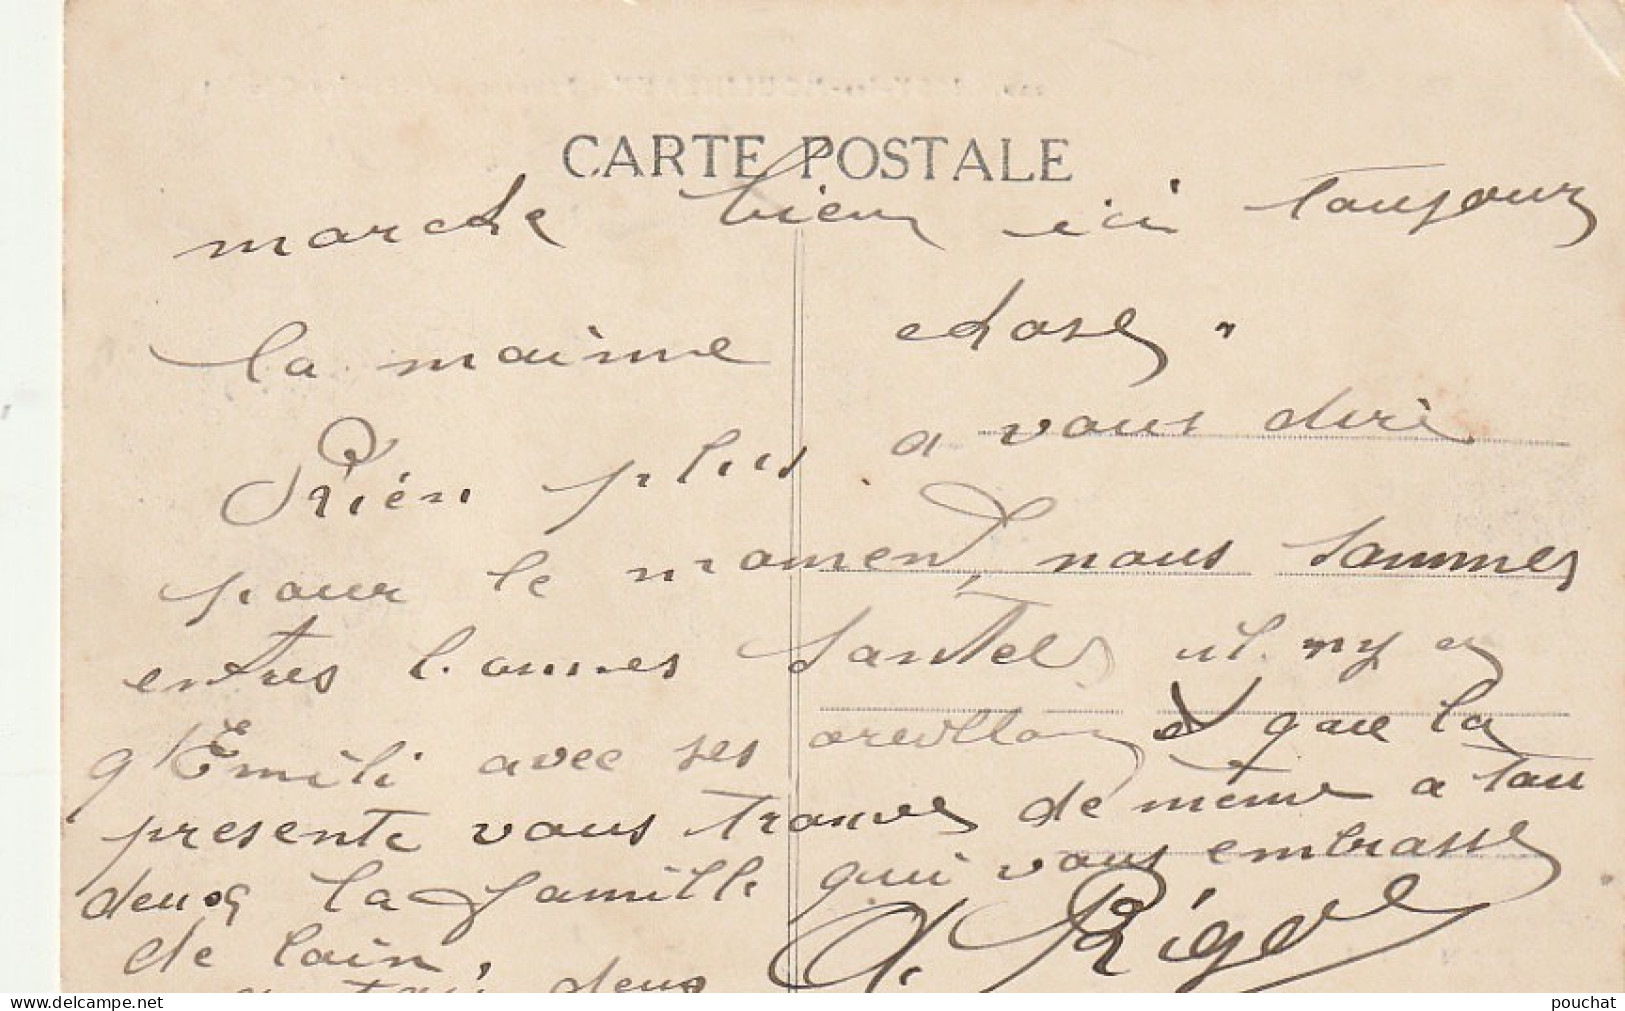 CARTE POSTALE
marche bien ici toujours
la maime chose.
Rién plus a vous dire
pour le moment, nous sommes
entres bonnes santes il ny a
q'Emili avec ses oreillons et que la
presente vous trouves de meme a tou
deux la famille qui vous embrasse
de loin,
a tou deux
www.delcampe.net
pouchat